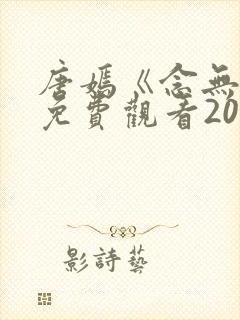 唐媽《念無
免費觀看20
影詩藝